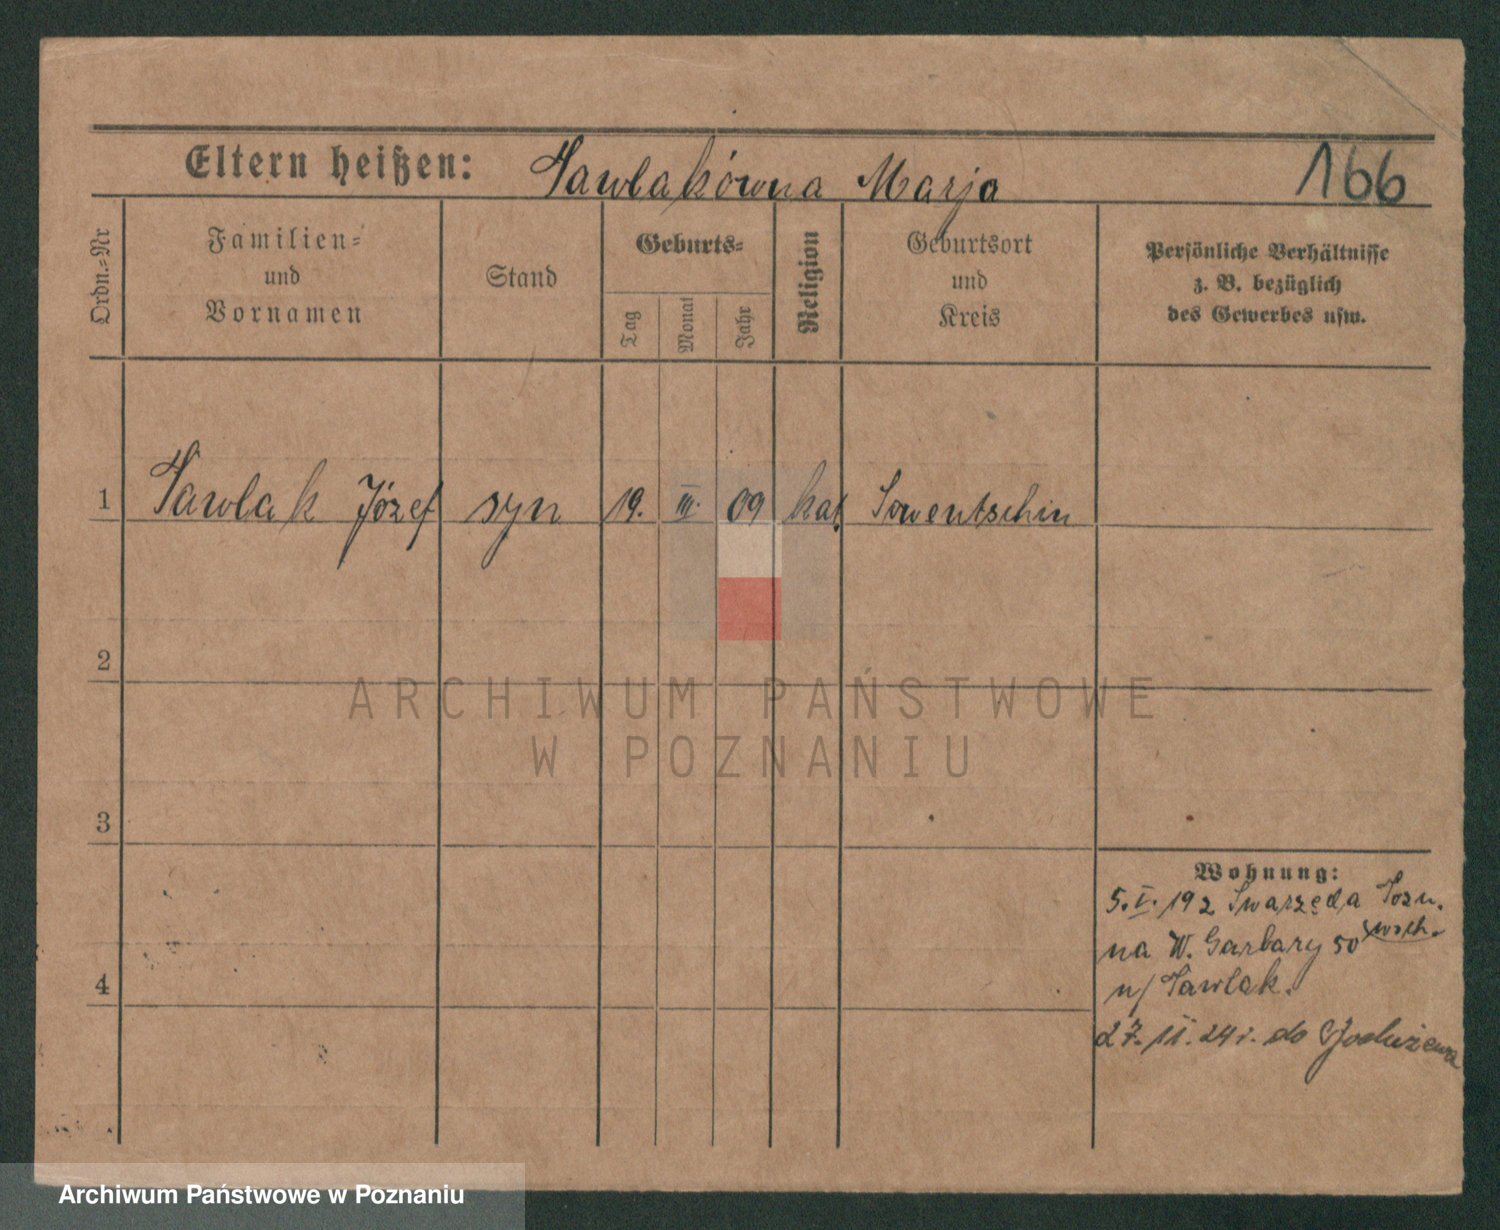 Eltern heißen: Pawlakówna Marja 166
Ordn.=Nr
Familien=
und
Vornamen
Stand
Geburts=
Tag
Monat
Jahr
Religion
Geburtsort
und
Kreis
Persönliche Verhältnisse
z. B. bezüglich
des Gewerbes usw.
1 Pawlak Józef syn 19. III. 09 kat. Sowentschin
2
3
4
Wohnung:
5. I. 192 Swarzęda Pozn.
wsch.
na W. Garbary 50
u/ Pawlak.
27. II. 24 r. do
ARCHIWUM PAŃSTWOWE
W POZNANIU
Archiwum Państwowe w Poznaniu